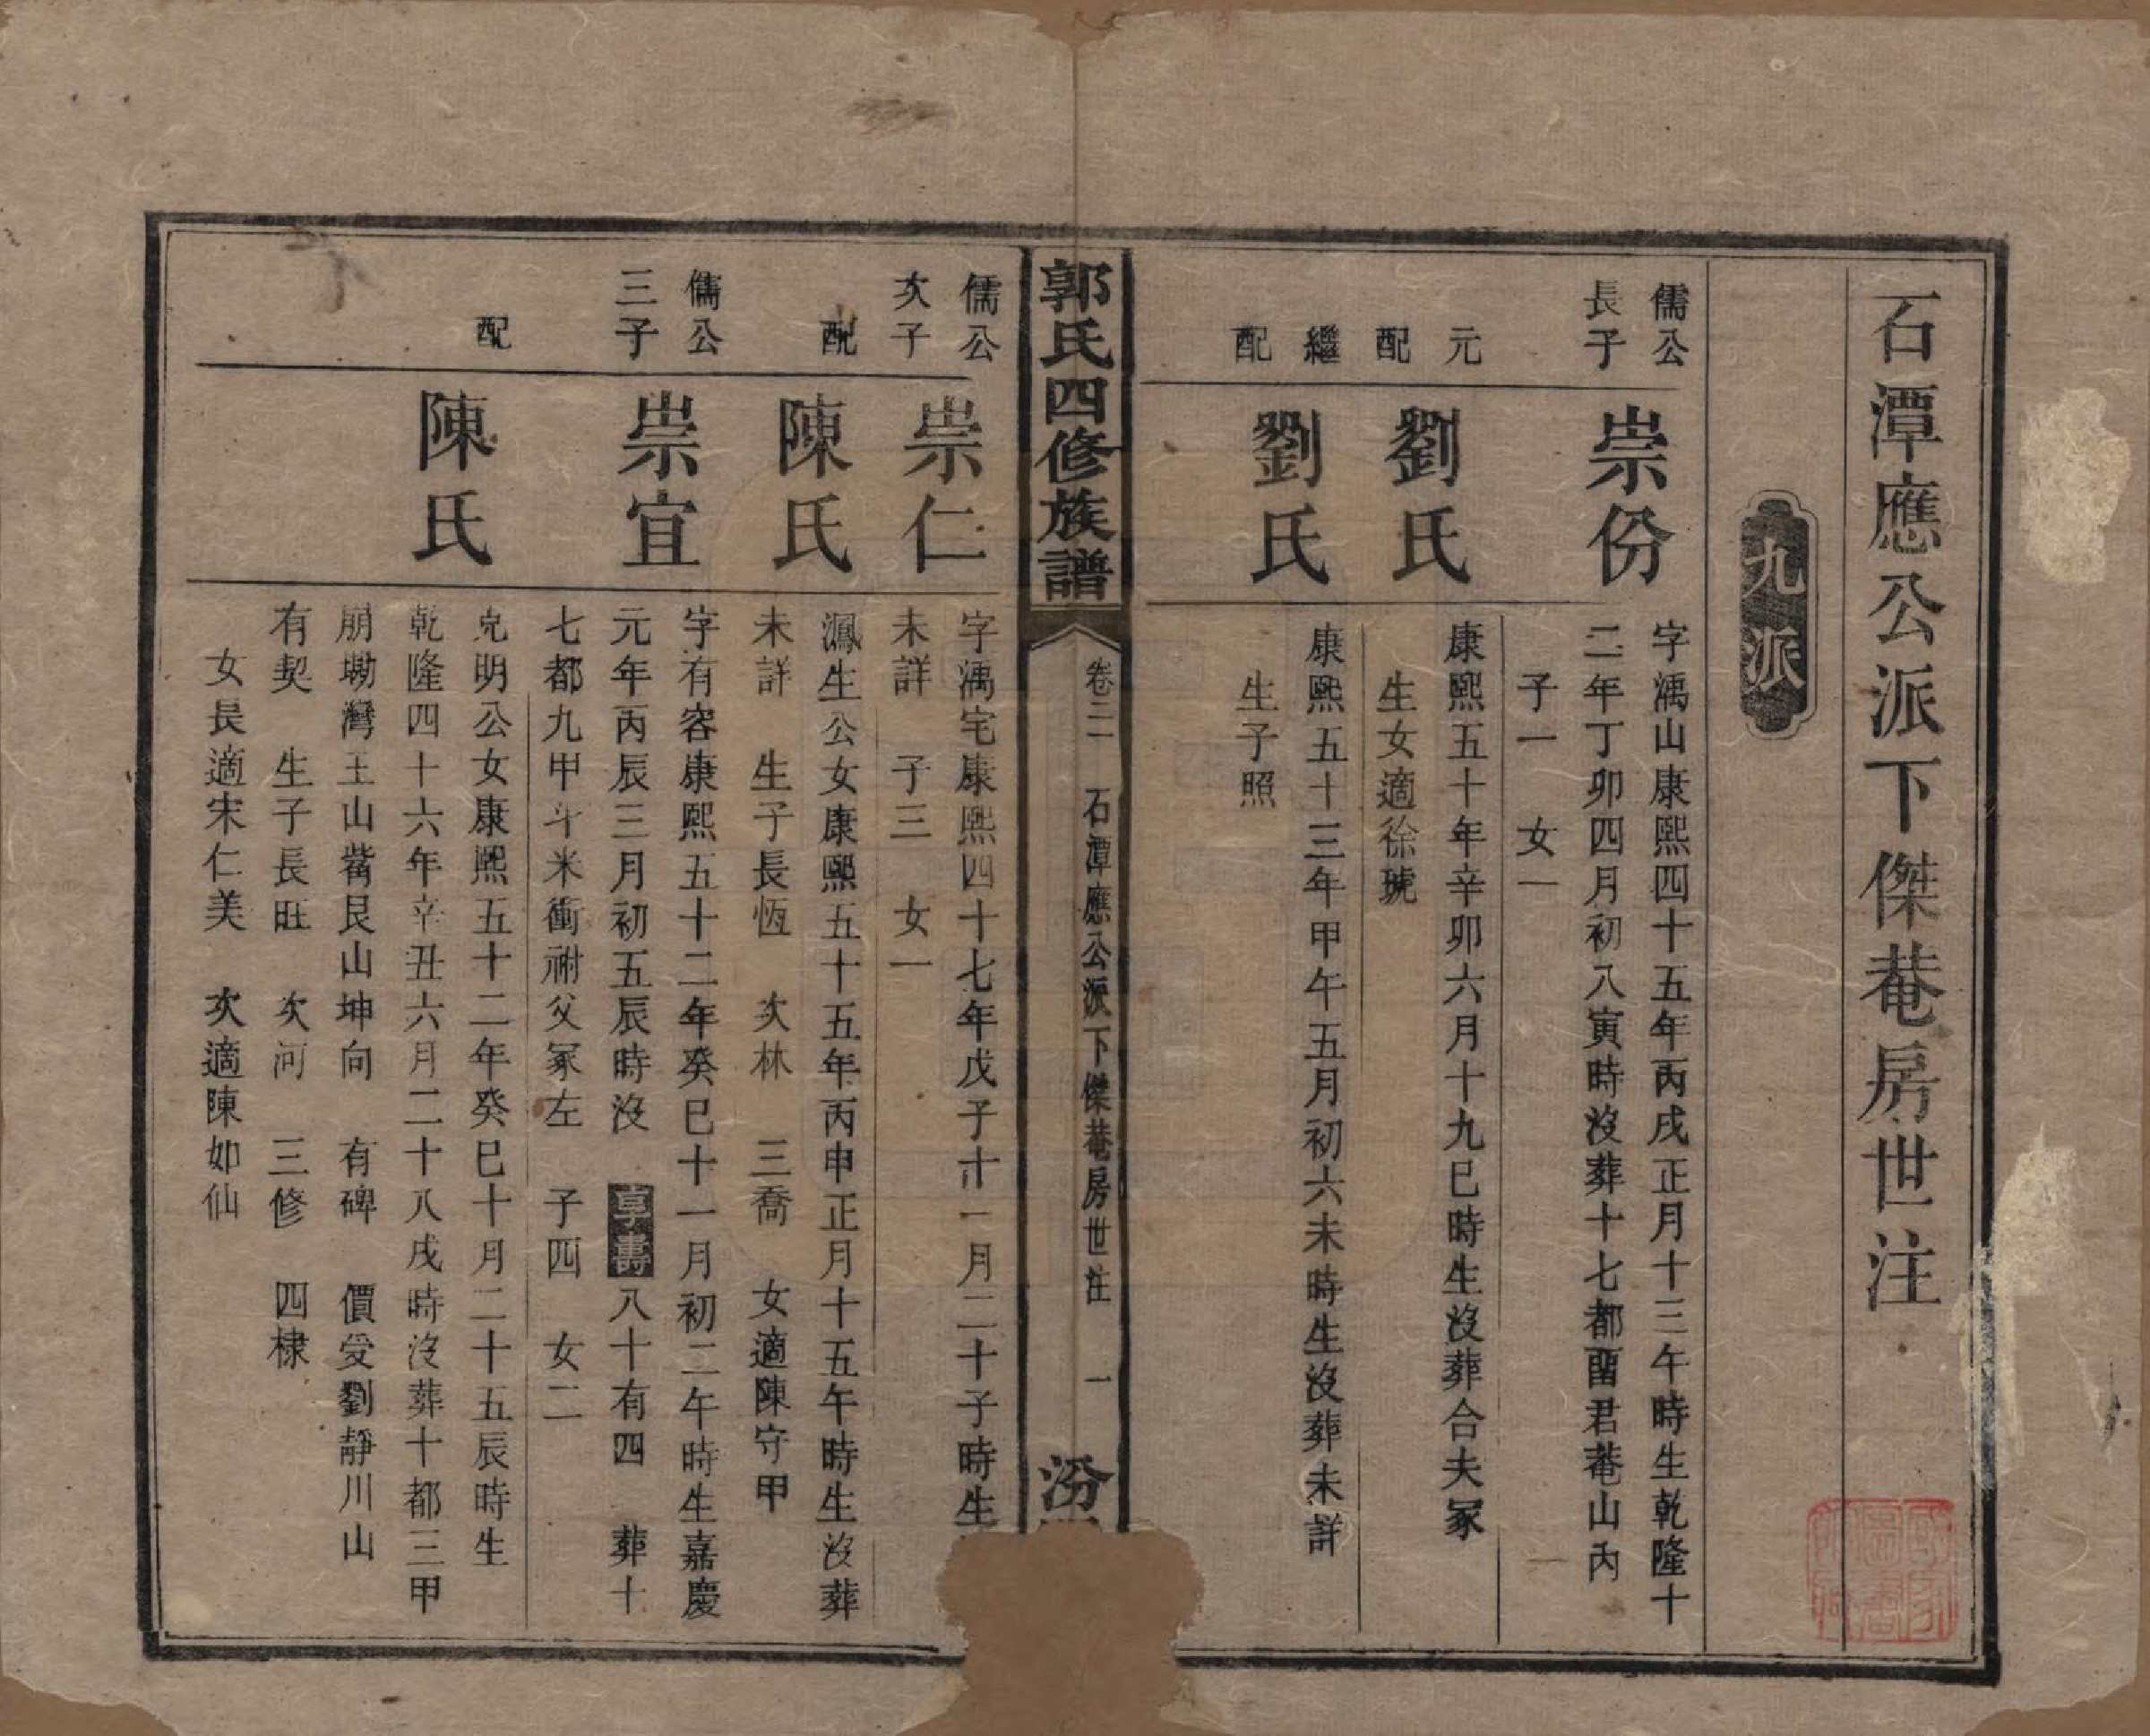 石潭應公派下傑菴房世注
九派
儒公
長子
崇份
字濡山康熙四十五年丙戌正月十三午時生乾隆十
二年丁卯四月初八寅時沒葬十七都畱君菴山內
子一　女一
元
配
劉氏
康熙五十年辛卯六月十九巳時生沒葬合夫冢
生女適徐琥
繼
配
劉氏
康熙五十三年甲午五月初六未時生沒葬未詳
生子照
郭氏四修族譜
卷二　石潭應公派下傑菴房世注　一
汾
儒公
次子
崇仁
字濡宅康熙四十七年戊子十一月二十子時生
未詳　子三　女一
配
陳氏
鳳生公女康熙五十五年丙申正月十五午時生沒葬
未詳　生子長恆　次林　三喬　女適陳守甲
儒公
三子
崇宜
字有容康熙五十二年癸巳十一月初二午時生嘉慶
元年丙辰三月初五辰時沒　享壽八十有四　葬十
七都九甲斗米衝祔父冢左　子四　女二
配
陳氏
克明公女康熙五十二年癸巳十月二十五辰時生
乾隆四十六年辛丑六月二十八戌時沒葬十都三甲
朋塘灣王山嘴艮山坤向　有碑　價受劉靜川山
有契　生子長旺　次河　三修　四棣
女長適宋仁美　次適陳如仙